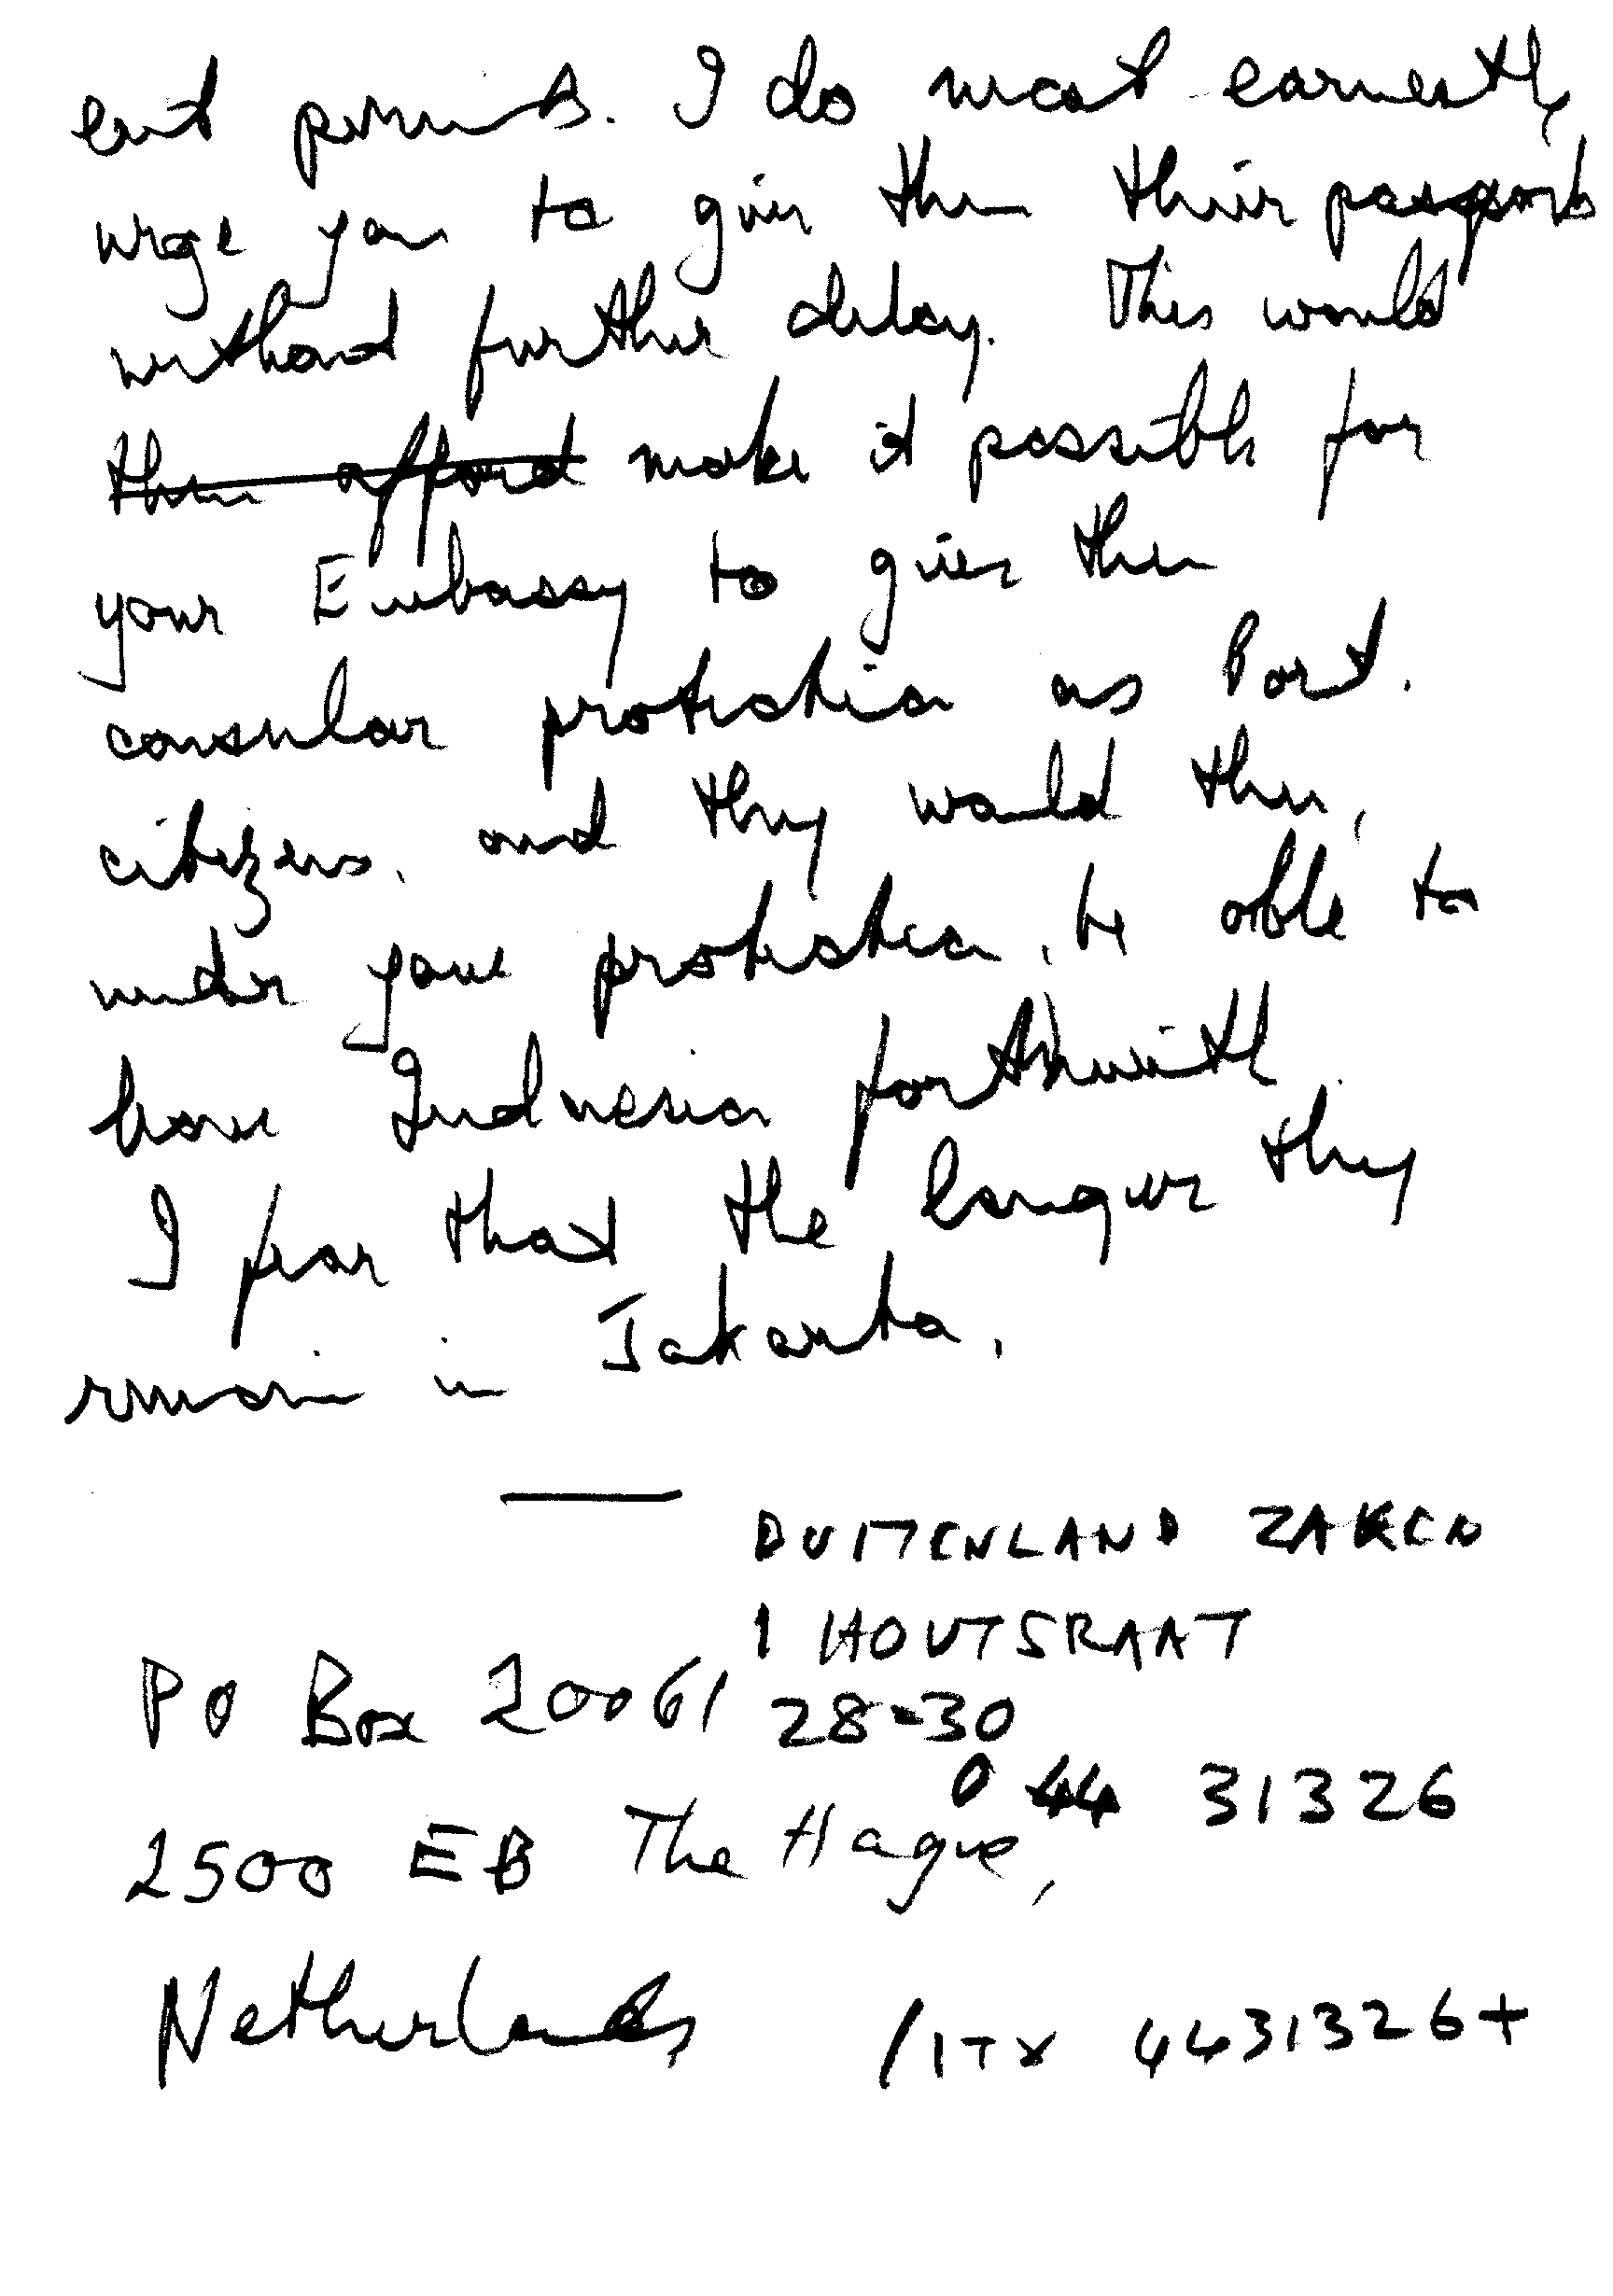 exit permits. I do most earnestly
urge you to give them their passports
without further delay. This would
them afford make it possible for
your Embassy to give them
consular protection as Port.
citizens. and they would then,
under your protection, be able to
leave Indonesia forthwith.
I fear that the longer they
remain in Jakarta,
BUITENLAND ZAKEN
1 HOUTSRAAT
PO Box 20061 28-30
0 44 31326
2500 EB The Hague,
Netherlands /ITX 4431326+